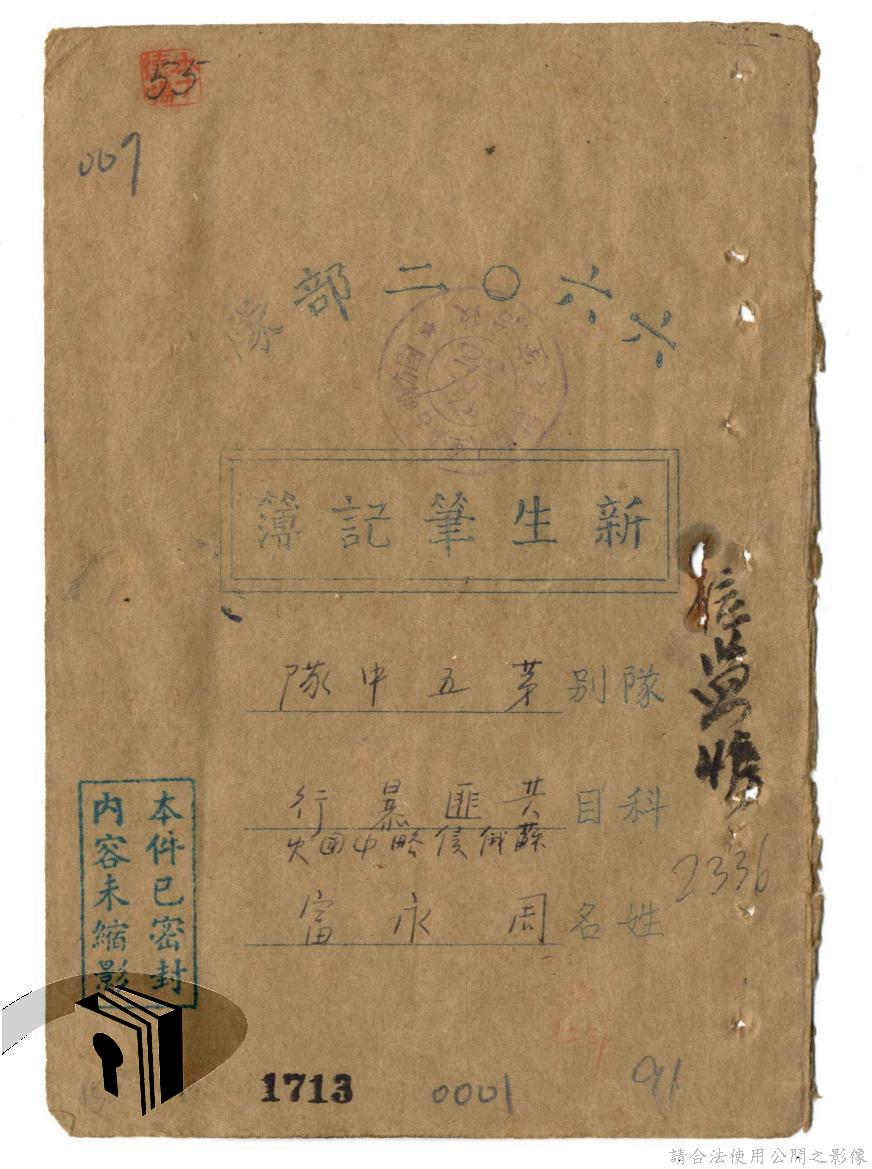 55
007
六六〇二部隊
新生筆記簿
隊別 第五中隊
科目 共匪暴行
蘇俄侵略中国史
姓名 周永富
2336
本件已密封
內容未縮影
1713
0001
91
請合法使用公開之影像